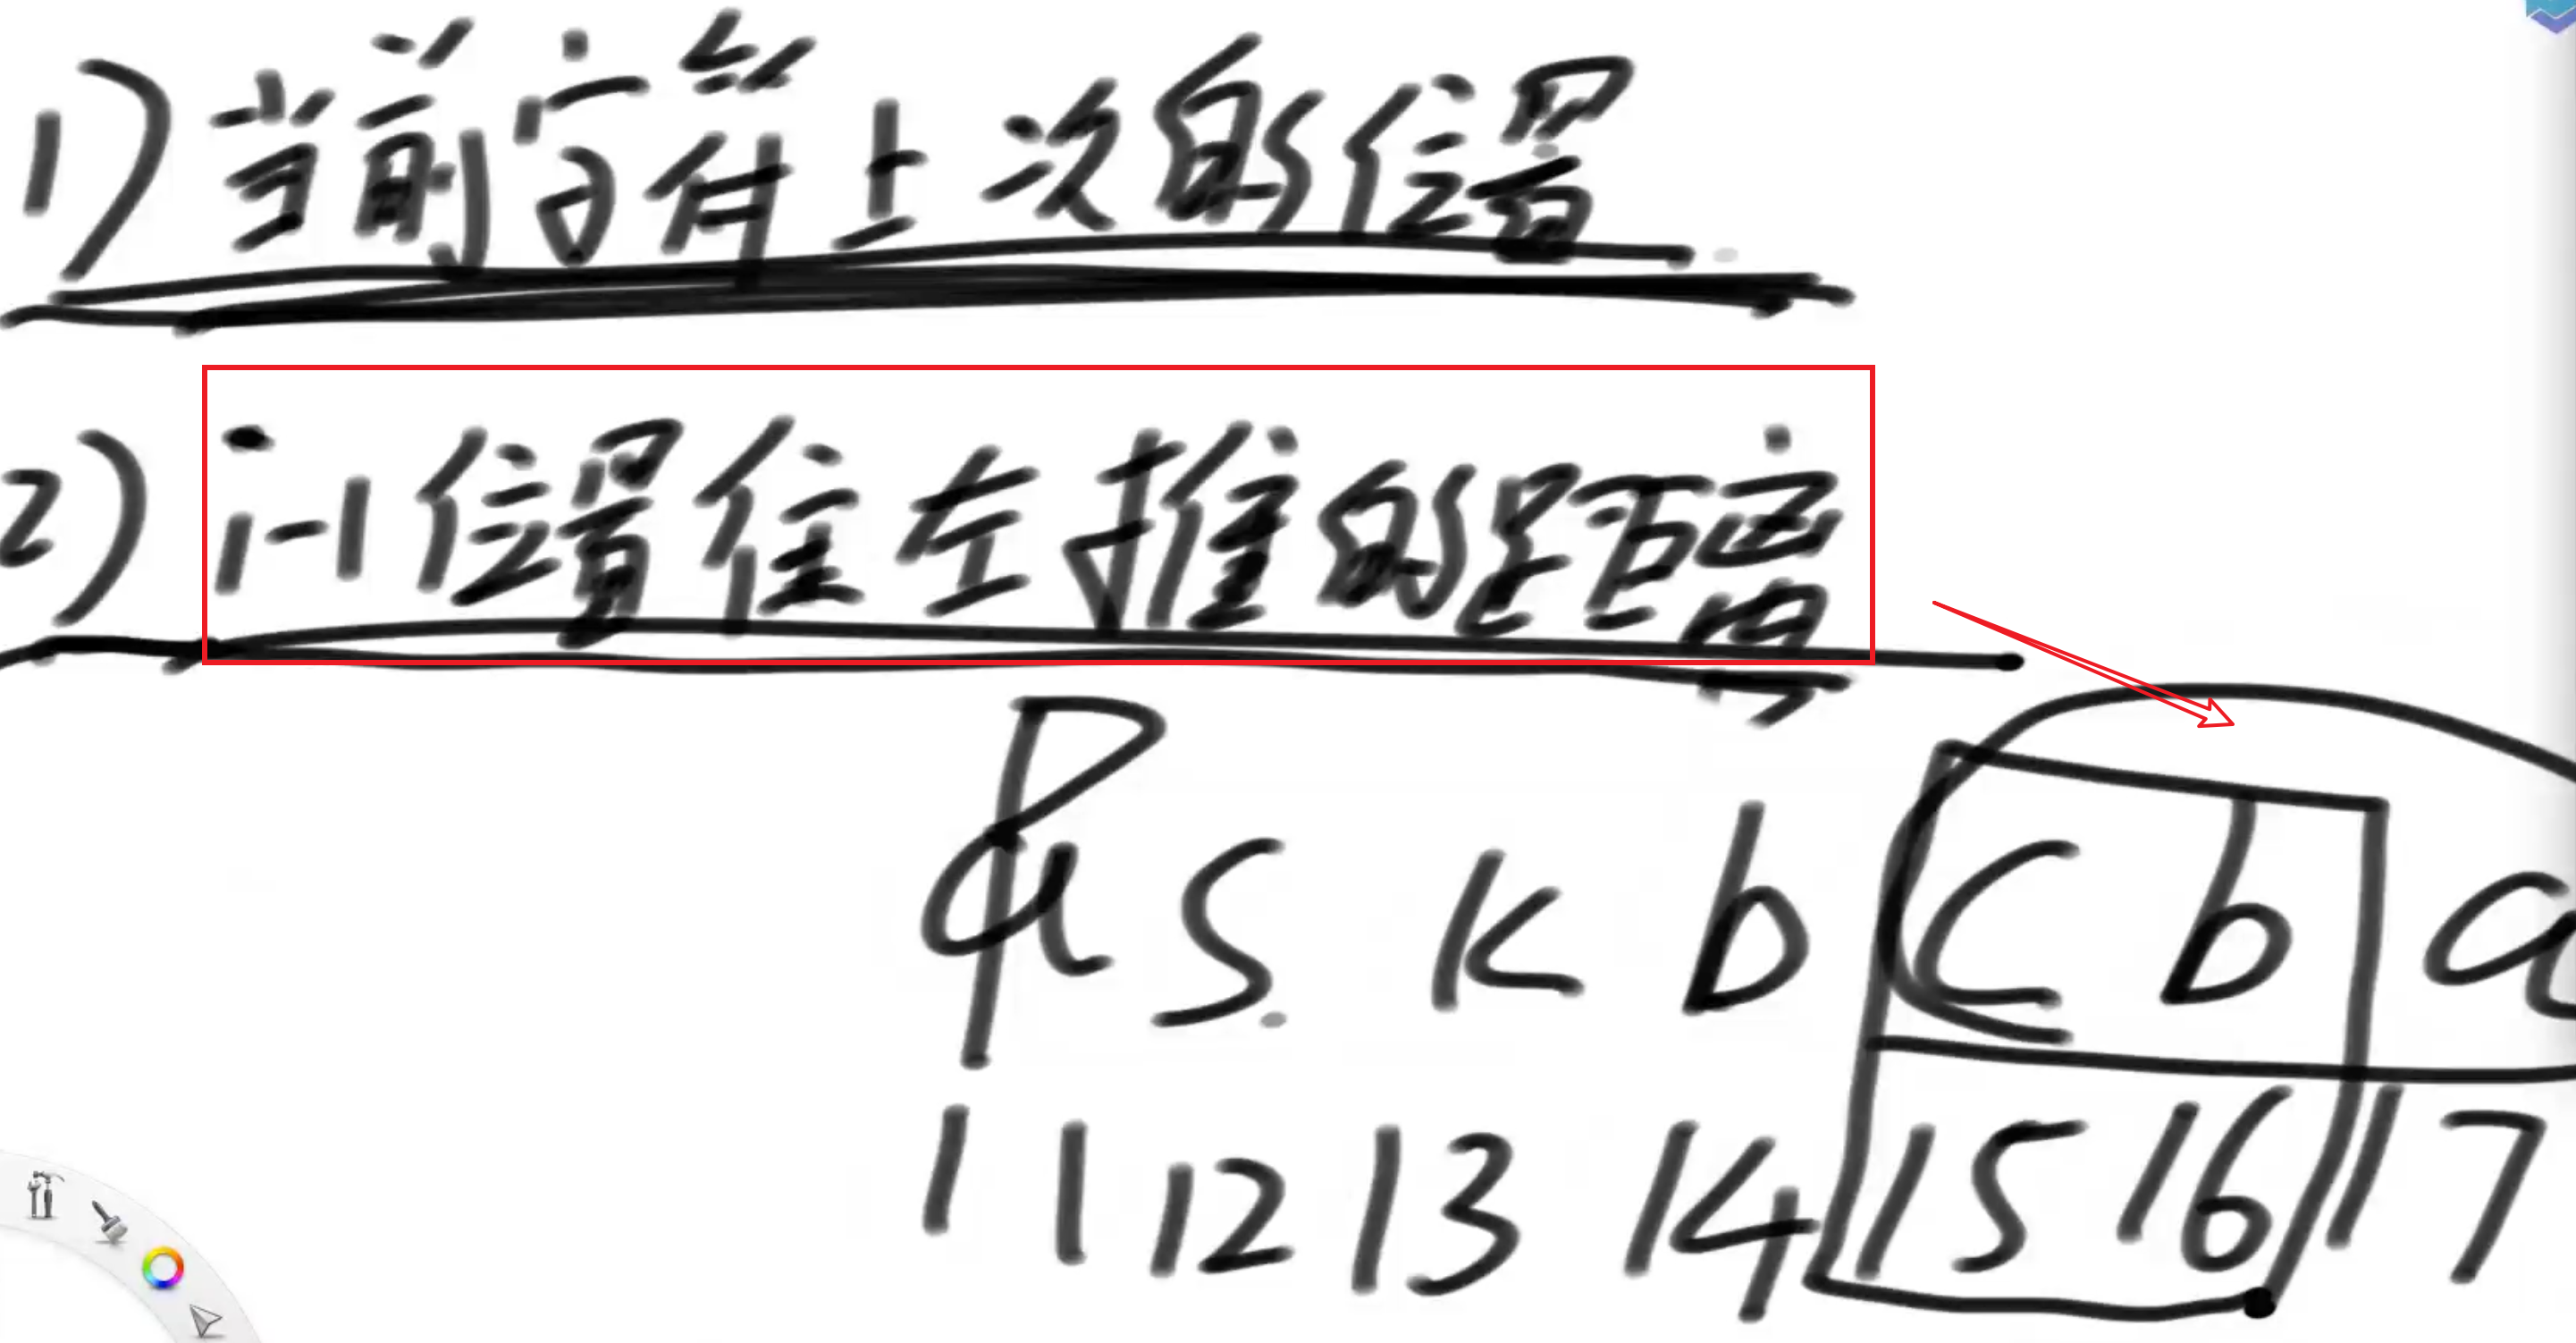 1) 当前字符上次的位置
2) i-1位置往左推的距离
a s k b c b a
11 12 13 14 15 16 17